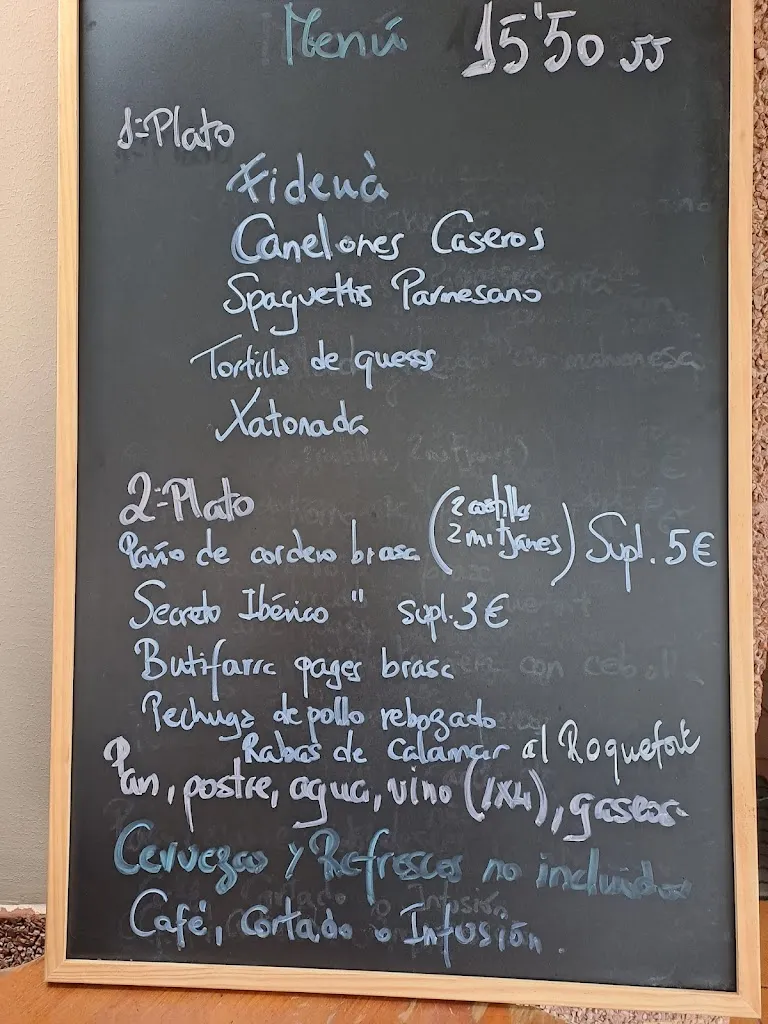 Menú 15'50
1=Plato
Fideuà
Canelones Caseros
Spaguettis Parmesano
Tortilla de quesos
Xatonada
2=Plato
de cordero brasa (2 costillas 2 mitjanes) Supl. 5€
Secreto Ibérico " supl. 3€
Butifarra pages brasa
Pechuga de pollo rebozado
Rabas de calamar al Roquefort
Pan, postre, agua, vino (1x4), gaseosa
Cervezas y Refrescos no incluidos
Café, Cortado o Infusión.